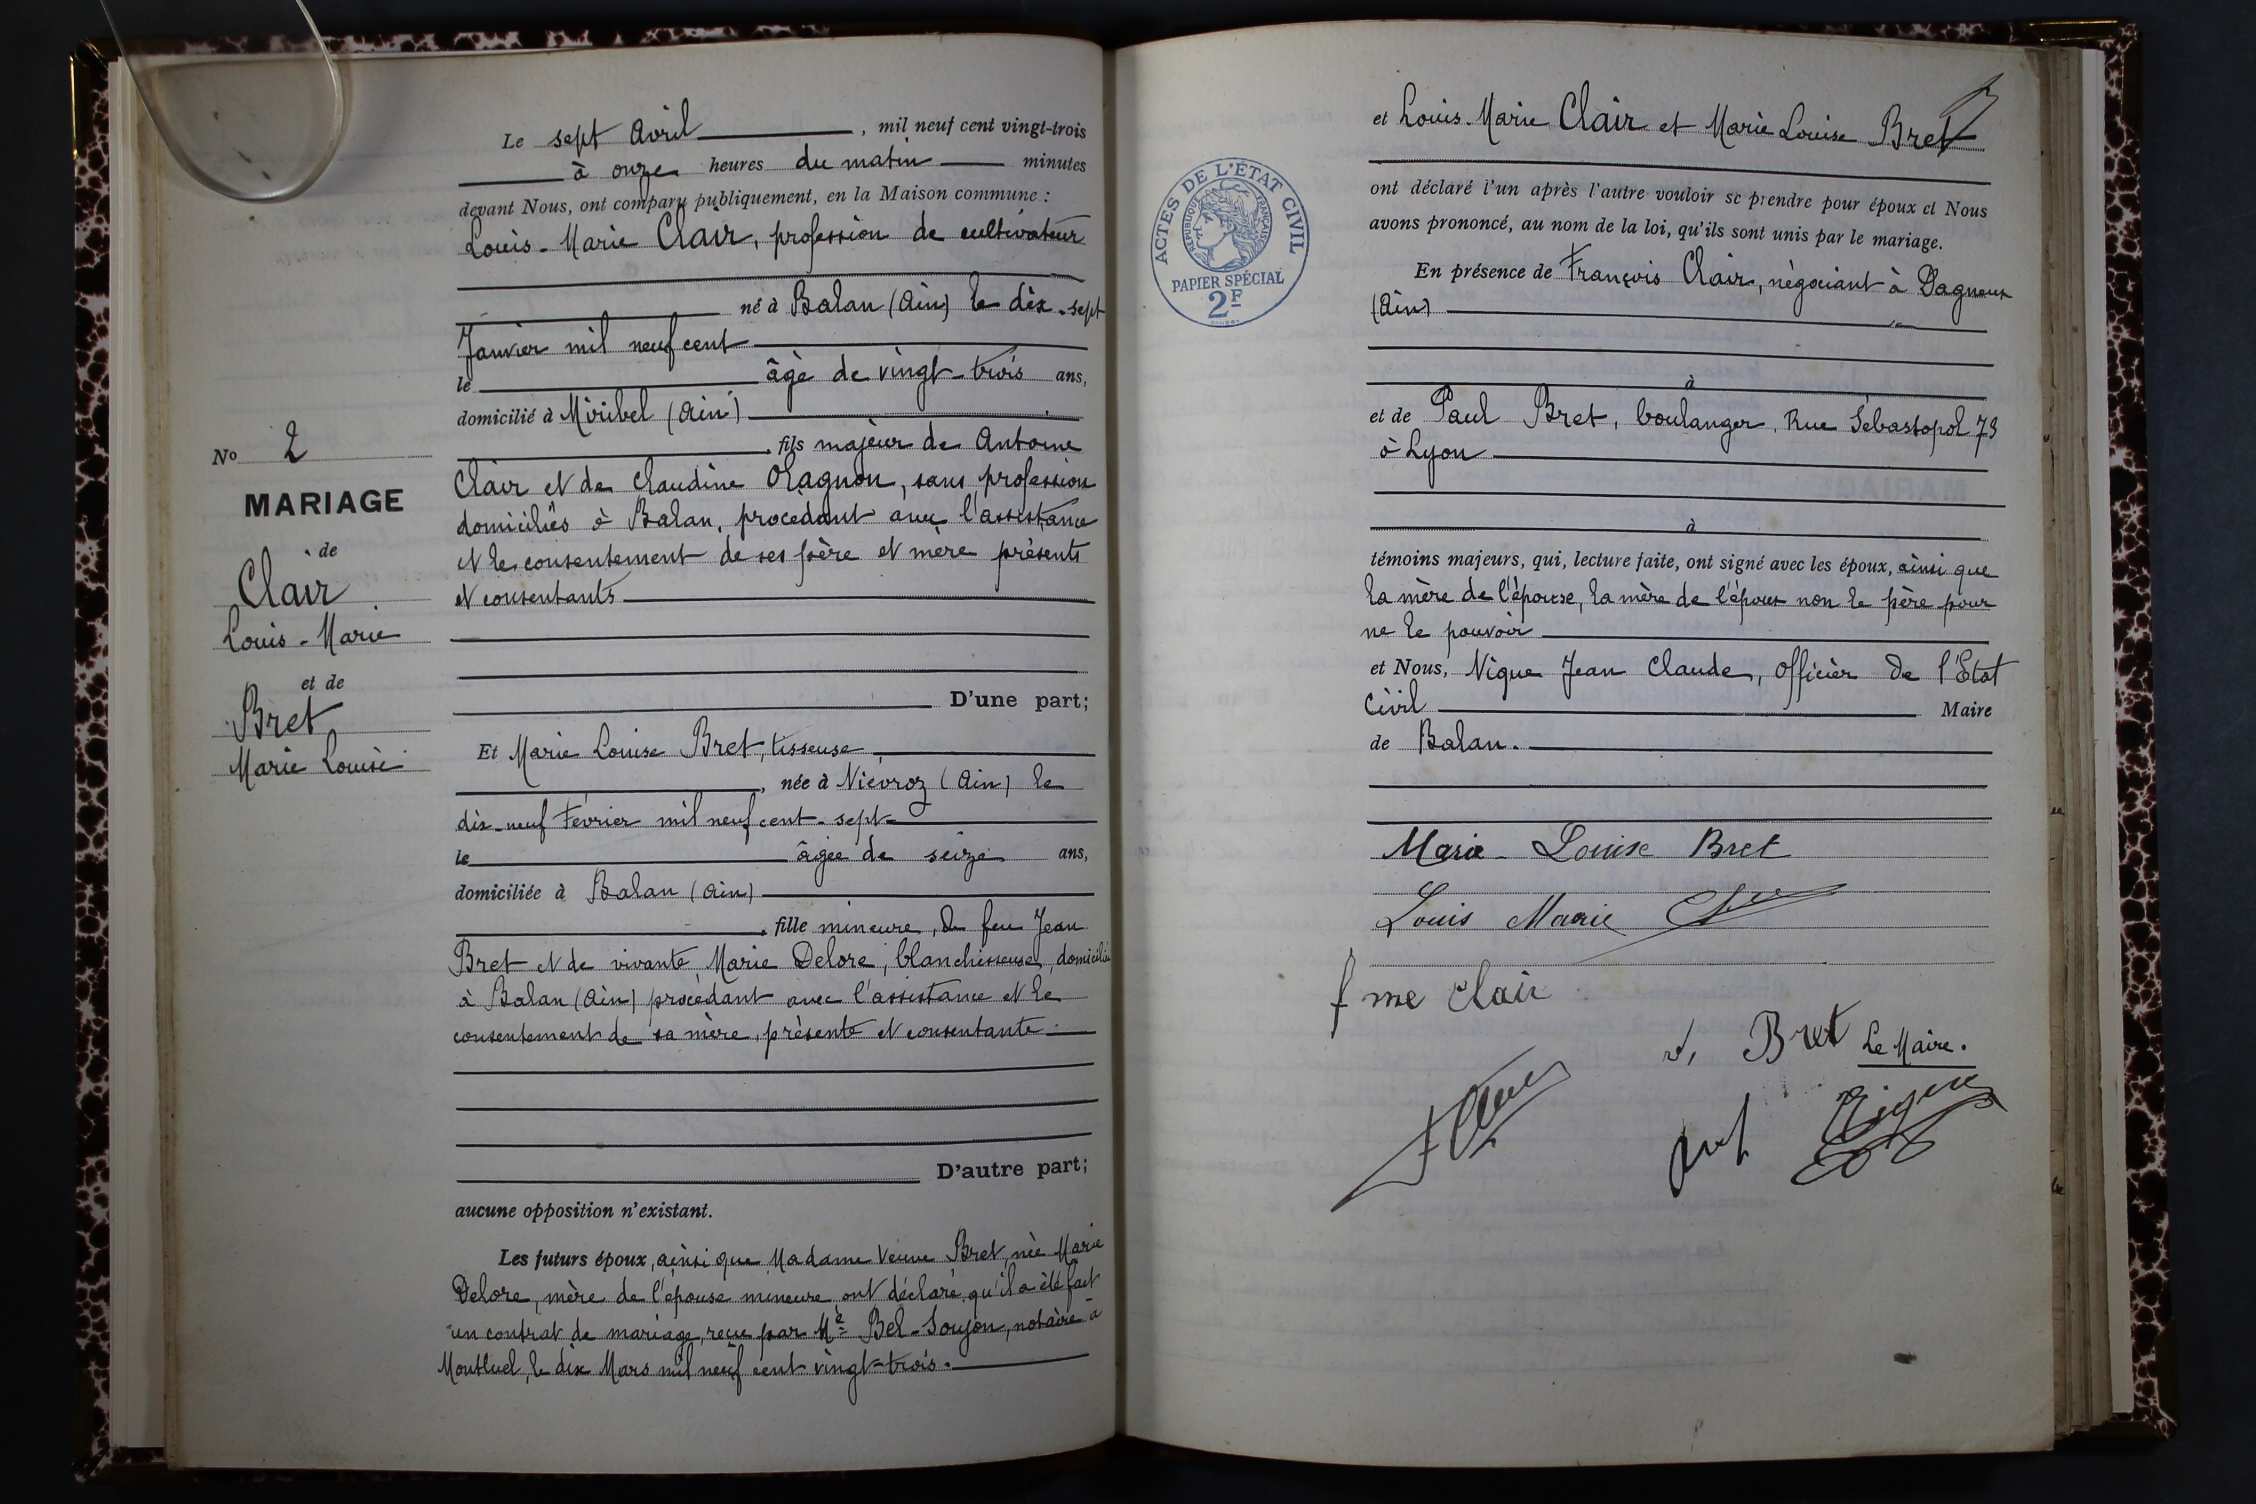 Le sept Avril, mil neuf cent vingt-trois
à onze heures du matin minutes
devant Nous, ont comparu publiquement, en la Maison commune :
Louis-Marie Clair, profession de cultivateur
né à Balan (Ain) le dix-sept
Janvier mil neuf cent
le âgé de vingt-trois ans,
domicilié à Miribel (Ain)
, fils majeur de Antoine
Clair et de Claudine Olagnon, sans profession
domiciliés à Balan, procédant avec l'assistance
et le consentement de ses père et mère présents
et consentants
D'une part;
No 2
MARIAGE
de
Clair
Louis-Marie
et de
Bret
Marie Louise
Et Marie Louise Bret, tisseuse
, née à Niévroz (Ain) le
dix-neuf Février mil neuf cent-sept
le âgée de seize ans,
domiciliée à Balan (Ain)
, fille mineure, de feu Jean
Bret et de vivante, Marie Delore, blanchisseuse, domiciliée
à Balan (Ain) procédant avec l'assistance et le
consentement de sa mère, présente et consentante
D'autre part;
aucune opposition n'existant.
Les futurs époux, ainsi que Madame Veuve Bret, née Marie
Delore, mère de l'épouse mineure ont déclaré qu'il a été fait
un contrat de mariage, reçu par Me Bel-Soujon, notaire à
Montluel, le dix Mars mil neuf cent vingt-trois.
et Louis-Marie Clair et Marie Louise Bret
ont déclaré l'un après l'autre vouloir se prendre pour époux et Nous
avons prononcé, au nom de la loi, qu'ils sont unis par le mariage.
ACTES DE L'ÉTAT CIVIL
RÉPUBLIQUE FRANÇAISE
PAPIER SPÉCIAL
2F
En présence de François Clair, négociant à Dagneux
(Ain)
à
et de Paul Bret, boulanger, Rue Sébastopol 73
à Lyon
à
témoins majeurs, qui, lecture faite, ont signé avec les époux, ainsi que
la mère de l'épouse, la mère de l'époux non le père pour
ne le pouvoir
et Nous, Nique Jean Claude, Officier de l'Etat
Civil Maire
de Balan.
Marie Louise Bret
Louis Marie Clair
fme Clair
v, Bret Le Maire.
F Clair
Nique